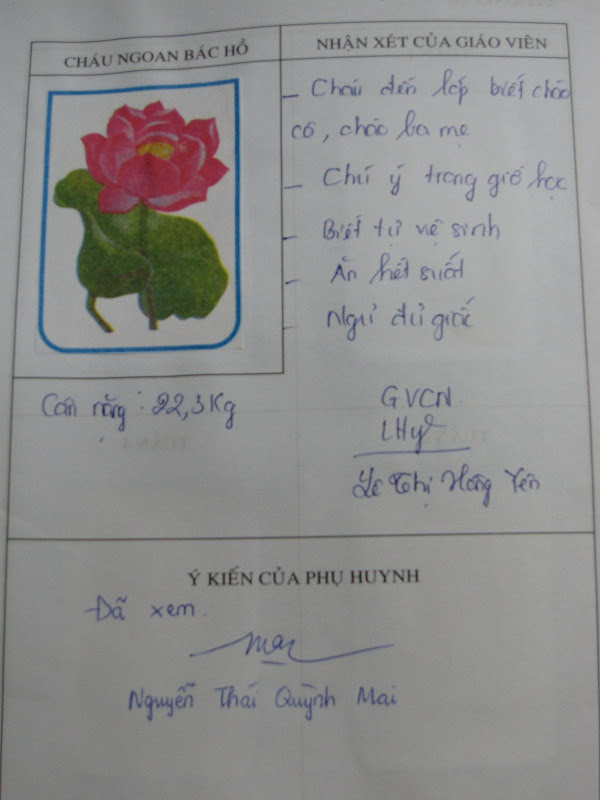 CHÁU NGOAN BÁC HỒ
NHẬN XÉT CỦA GIÁO VIÊN
- Cháu đến lớp biết chào
cô, chào ba mẹ
- Chú ý trong giờ học
- Biết tự vệ sinh
- Ăn hết suất
- Ngủ đủ giấc
Cân nặng : 22,3Kg
GVCN.
LHy
Lê Thị Hồng Yên
Ý KIẾN CỦA PHỤ HUYNH
Đã xem.
Mai
Nguyễn Thái Quỳnh Mai